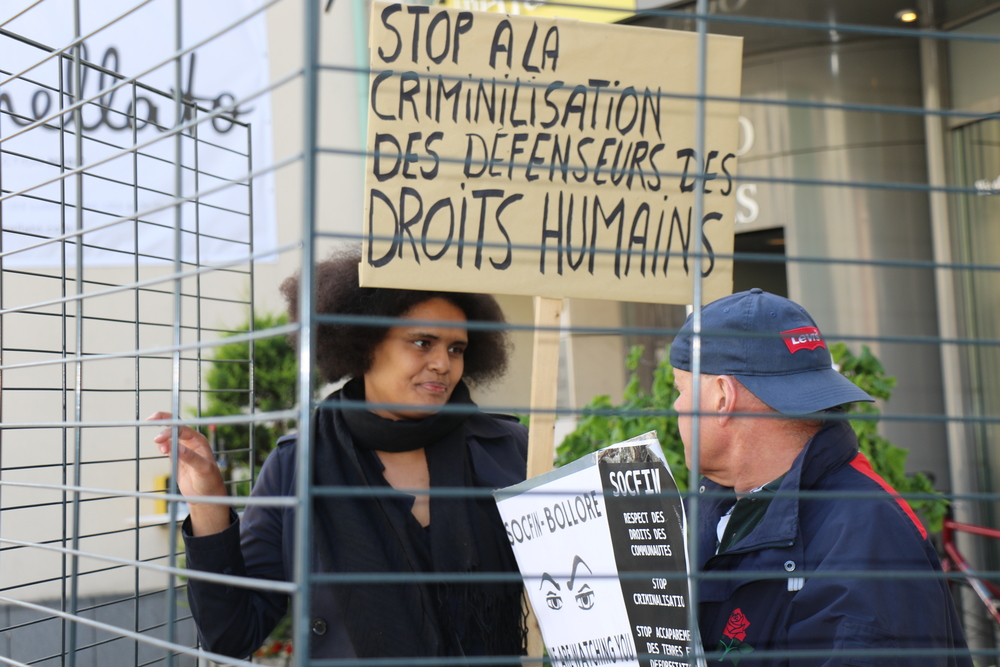 STOP À LA
CRIMINILISATION
DES DÉFENSEURS DES
DROITS HUMAINS
Levi's
SOCFIN-BOLLORE
WATCHING YOU
SOCFIN
RESPECT DES
DROITS DES
COMMUNAUTES
STOP
CRIMINALISATIO
STOP ACCAPAREME
DES TERRES E